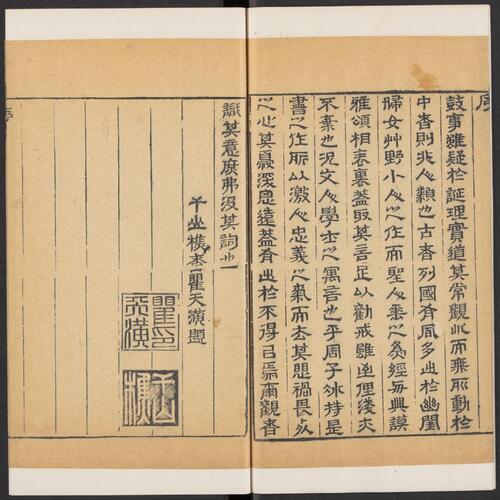 序
鼓事雖疑於誕理實道其常觀此而無所動於
中者則非人類也古者列國有風多出於幽閨
婦女艸野小人之作而聖人垂之為經與典謨
雅頌相表裏蓋取其言足以勸戒雖俚淺夫
不棄也況文人學士之寓言也乎周子冰持是
書之作所以激人忠義之氣而去其禍畏
之心其憂深思遠蓋有出於不得已焉爾觀者
識其意庶弗沒其詞也
千山樵者瞿天潢題
瞿印天潢